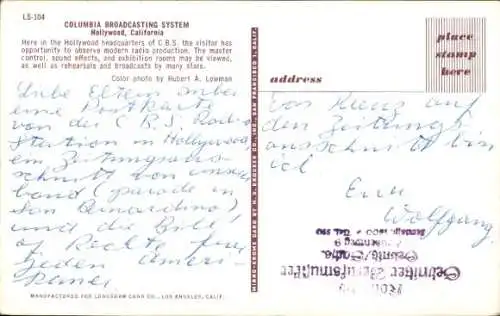 LS-104
COLUMBIA BROADCASTING SYSTEM
Hollywood, California
Here in the Hollywood headquarters of C.B.S. the visitor has
opportunity to observe modern radio production. The master
control, sound effects, and exhibition rooms may be viewed,
as well as rehearsals and broadcasts by many stars.
Color photo by Hubert A. Lowman
Liebe Eltern anbei
eine Postkarte
von der C.B.S. Radio
Station in Hollywood,
ein Zeitungsaus-
schnitt von unserer
band (parade in
San Bernardino)
und die Bill
of Rights für
jeden Ameri-
kaner
MANUFACTURED FOR LONGSHAW CARD CO., LOS ANGELES, CALIF.
MIRRO-KROME CARD BY H. S. CROCKER CO., INC., SAN FRANCISCO 1, CALIF.
place
stamp
here
address
Das Kreuz auf
dem Zeitungs
ausschnitt bin
ich
Euer
Wolfgang